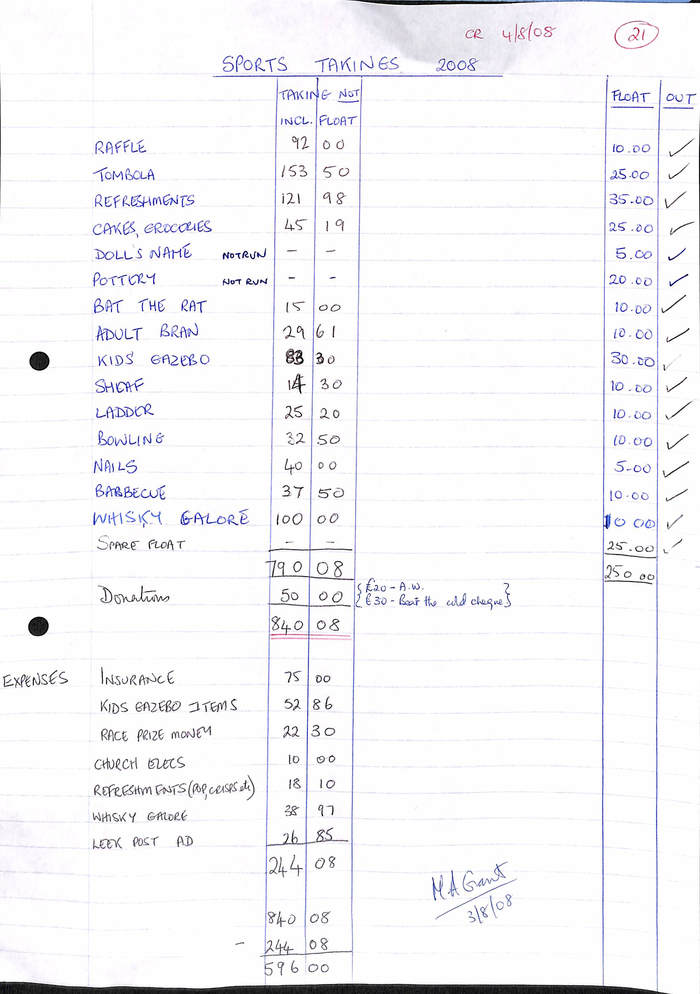 CR 4/8/08 21
SPORTS TAKINGS 2008
TAKING NOT FLOAT OUT
INCL. FLOAT
RAFFLE 92 00 10.00 ✓
TOMBOLA 153 50 25.00 ✓
REFRESHMENTS 121 98 35.00 ✓
CAKES, GROCERIES 45 19 25.00 ✓
DOLL'S NAME NOT RUN - - 5.00 ✓
POTTERY NOT RUN - - 20.00 ✓
BAT THE RAT 15 00 10.00 ✓
ADULT BRAN 29 61 10.00 ✓
KIDS GAZEBO 83 30 30.00 ✓
SHEAF 14 30 10.00 ✓
LADDER 25 20 10.00 ✓
BOWLING 32 50 10.00 ✓
NAILS 40 00 5.00 ✓
BARBECUE 37 50 10.00 ✓
WHISKY GALORE 100 00 10 00 ✓
SPARE FLOAT - - 25.00 ✓
790 08 250 00
Donations 50 00 {£20 - A.W. }
{£30 - Beat the cold cheque}
840 08
EXPENSES INSURANCE 75 00
KIDS GAZEBO ITEMS 52 86
RACE PRIZE MONEY 22 30
CHURCH ELECS 10 00
REFRESHMENTS (POP, CRISPS etc) 18 10
WHISKY GALORE 38 97
LEEK POST AD 26 85
244 08
M A Grant
3/8/08
840 08
- 244 08
596 00